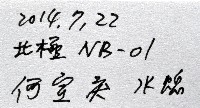 2014.7.22
北極 NB-01
何宜庆 水螅